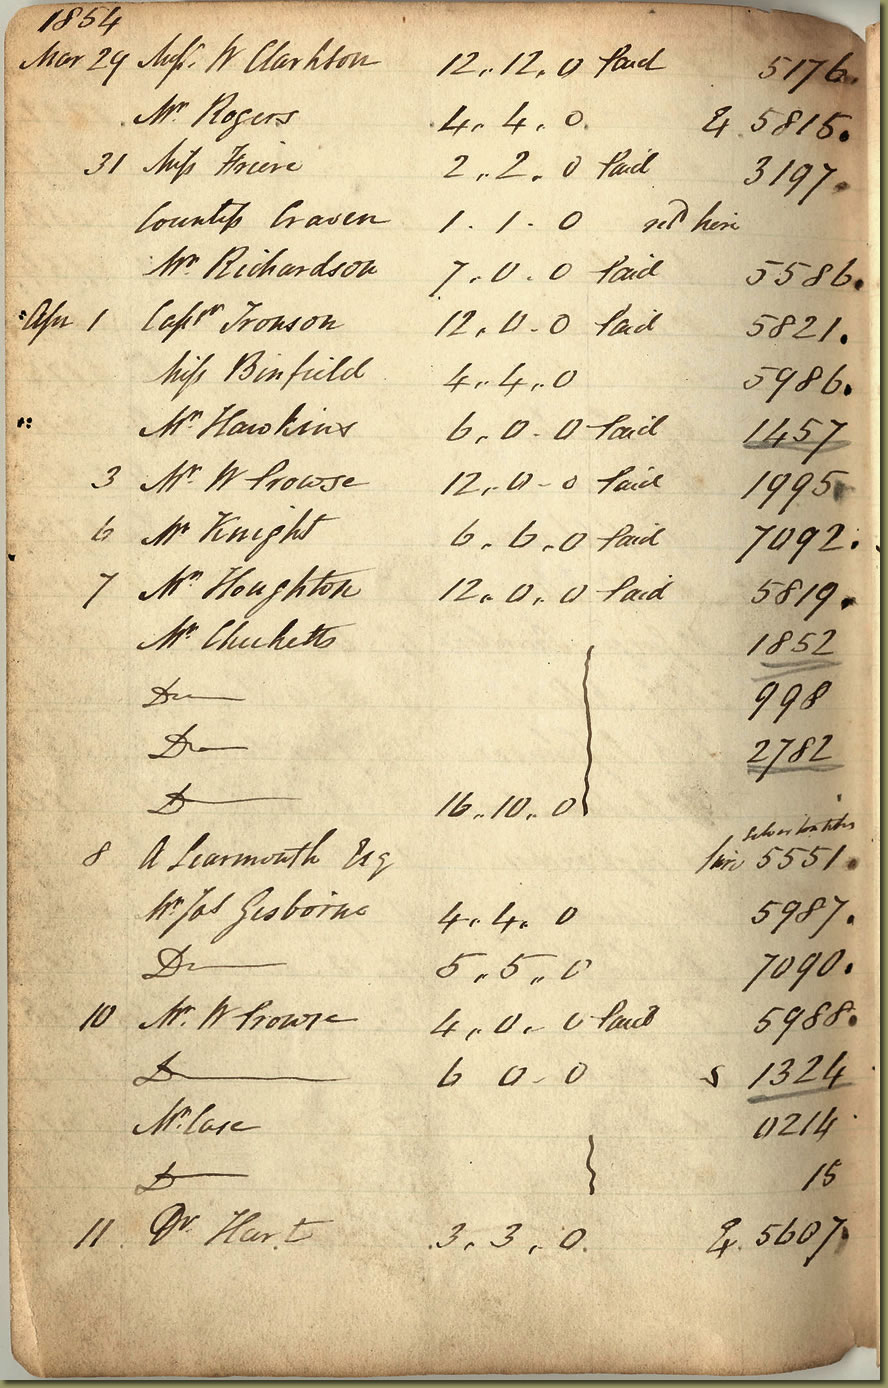 1854
Mar 29 Mess. W Clarkson 12,, 12,, 0 Paid 5176.
Mr Rogers 4,, 4,, 0. 5815.
31 Miss Friere 2,, 2,, 0 Paid 3197.
Countess Craven 1. 1. 0 here
Mr Richardson 7,, 0. 0 Paid 5586.
Apr 1 Captn Tronson 12,, 0. 0 Paid 5821.
Miss Binfield 4,, 4,, 0 5986.
Mr Hawkins 6,, 0. 0 Paid 1457
3 Mr W Prowse 12,, 0 - 0 Paid 1995
6 Mr Knight 6,, 6,, 0 Paid 7092.
7 Mr Houghton 12,, 0,, 0 Paid 5819.
Mr Checketts 1852
Do 998
Do 2782
Do 16,, 10,, 0
8 A Learmonth Esq 5551.
Mr Jas Gisborne 4,, 4,, 0 5987.
Do 5,, 5,, 0 7090.
10 Mr W Prowse 4,, 0,, 0 Paid 5988.
Do 6 0 - 0 s 1324
Mr Case 0214
Do 15
11 Dr Hart 3,, 3,, 0. 5607.